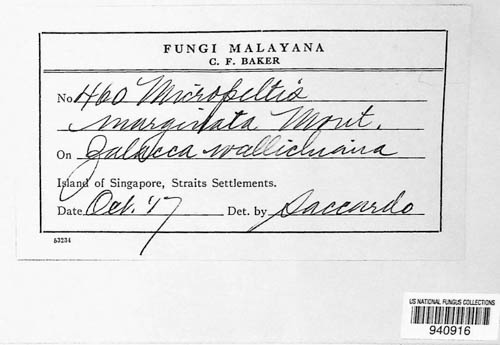 FUNGI MALAYANA
C. F. BAKER
No 460 Micropeltis
marginata Mont.
On Zalacca wallichiana
Island of Singapore, Straits Settlements.
Date Oct. '17 Det. by Saccardo
63234
US NATIONAL FUNGUS COLLECTIONS
940916